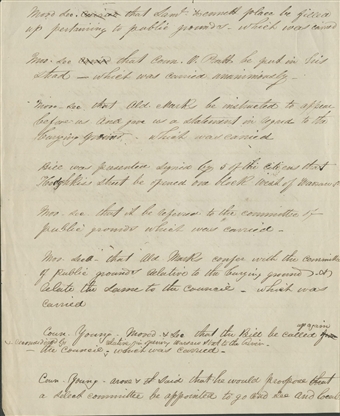 Movd sec. carried that Saml. Bennett place be filled
up pertaining to public grounds - which was carried
Mov. sec carried that Coun. V. Rabb be put in his
stead - which was carried unanimously -
Mov. sec that Ald Mark be instructed to appear
before us and give us a statement in regard to the
burying ground. which was carried
was presented signed by 5 of the citizens that
street be opened one block west of
Mov. sec that it be refered to the committee of
public grounds which was carried -
Mov. sec that Ald Mark confer with the committee
of Public grounds relative to the burying ground &
relate the same to the council - which was
carried
Coun. Young. Movd & sec that the Bill be called up again
the council, which was carried -
Coun. Young. arose & said that he would propose that
a select committee be appointed to go and see and